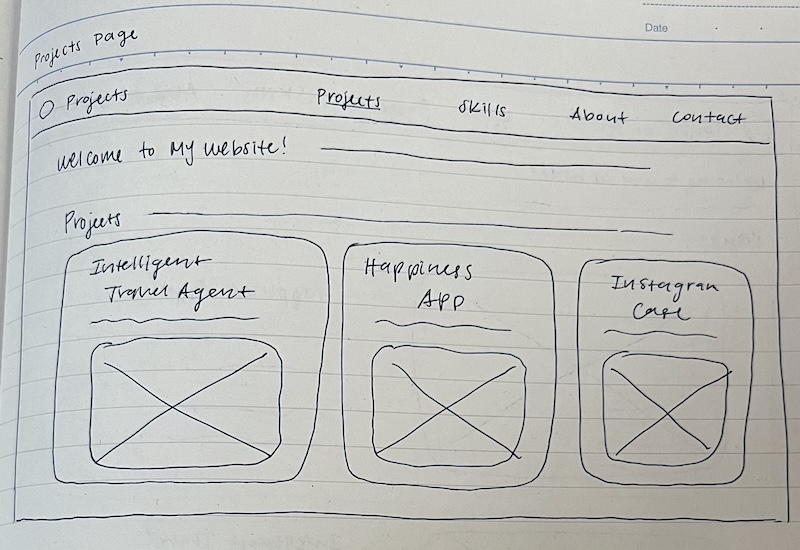 Date
Projects Page
Projects Projects Skills About Contact
Welcome to My Website!
Projects
Intelligent
Travel Agent
Happiness
App
Instagram
Case